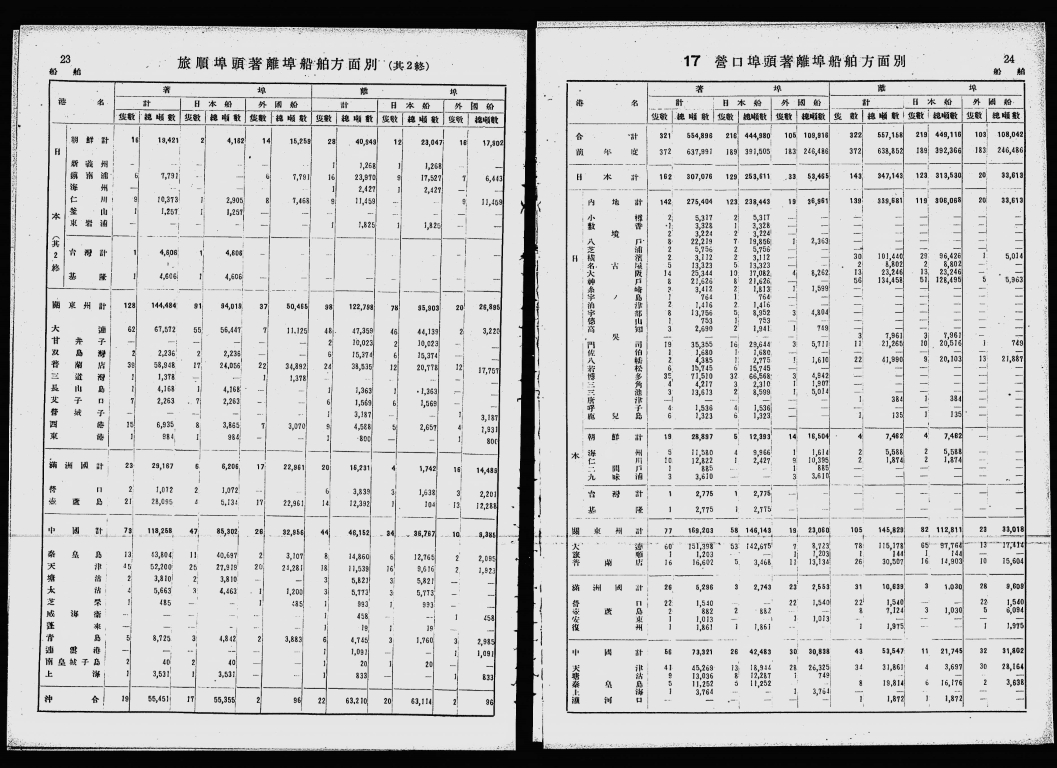 23
船舶
旅順埠頭著離埠船舶方面別 (其2終)
港名 著埠 離埠
計 日本船 外國船 計 日本船 外國船
隻數 總噸數 隻數 總噸數 隻數 總噸數 隻數 總噸數 隻數 總噸數 隻數 總噸數
日本(其2終)
朝鮮計 16 19,421 2 4,162 14 15,259 28 40,949 12 23,047 16 17,902
新義州 — — — — — — 1 1,268 1 1,268 — —
鎭南浦 6 7,791 — — 6 7,791 16 23,970 9 17,527 7 6,443
海州 — — — — — — 1 2,427 1 2,427 — —
仁川 9 10,373 1 2,905 8 7,468 9 11,459 — — 9 11,459
釜山 1 1,257 1 1,257 — — — — — — — —
東岩浦 — — — — — — 1 1,825 1 1,825 — —
台灣計 1 4,606 1 4,606 — — — — — — — —
基隆 1 4,606 1 4,606 — — — — — — — —
關東州計 128 144,484 91 94,019 37 50,465 98 122,798 78 95,903 20 26,895
大連 62 67,572 55 56,447 7 11,125 48 47,359 46 44,139 2 3,220
甘井子 — — — — — — 2 10,023 2 10,023 — —
双島灣 2 2,236 2 2,236 — — 6 15,374 6 15,374 — —
普蘭店 39 58,948 17 24,056 22 34,892 24 38,535 12 20,778 12 17,757
三道灣 1 1,378 — — 1 1,378 — — — — — —
長山島 1 4,168 1 4,168 — — 1 1,363 1 1,363 — —
艾子口 7 2,263 7 2,263 — — 6 1,569 6 1,569 — —
普城子 — — — — — — 1 3,187 — — 1 3,187
西港 15 6,935 8 3,865 7 3,070 9 4,588 5 2,657 4 1,931
東港 1 984 1 984 — — 1 800 — — 1 800
滿洲國計 23 29,167 6 6,206 17 22,961 20 16,231 4 1,742 16 14,489
營口 2 1,072 2 1,072 — — 6 3,839 3 1,638 3 2,201
壺蘆島 21 28,095 4 5,134 17 22,961 14 12,392 1 104 13 12,288
中國計 73 118,258 47 85,302 26 32,956 44 46,152 34 36,767 10 9,385
秦皇島 13 43,804 11 40,697 2 3,107 8 14,860 6 12,765 2 2,095
天津 45 52,200 25 27,919 20 24,281 18 11,539 16 9,616 2 1,923
塘沽 2 3,810 2 3,810 — — 3 5,821 3 5,821 — —
太沽 4 5,663 3 4,463 1 1,200 3 5,773 3 5,773 — —
芝罘 1 485 — — 1 485 1 993 1 993 — —
威海衛 — — — — — — 1 458 — — 1 458
蓬萊 — — — — — — 1 19 1 19 — —
靑島 5 8,725 3 4,842 2 3,883 6 4,745 3 1,760 3 2,985
連雲港 — — — — — — 1 1,091 — — 1 1,091
南皇城子島 2 40 2 40 — — 1 20 1 20 — —
上海 1 3,531 1 3,531 — — 1 833 — — 1 833
沖合 19 55,451 17 55,355 2 96 22 63,210 20 63,114 2 96
17 營口埠頭著離埠船舶方面別
24
船舶
港名 著埠 離埠
計 日本船 外國船 計 日本船 外國船
隻數 總噸數 隻數 總噸數 隻數 總噸數 隻數 總噸數 隻數 總噸數 隻數 總噸數
合計 321 554,896 216 444,980 105 109,916 322 557,158 219 449,116 103 108,042
前年度 372 637,991 189 391,505 183 246,486 372 638,852 189 392,366 183 246,486
日本計 162 307,076 129 253,611 33 53,465 143 347,143 123 313,530 20 33,613
日本
內地計 142 275,404 123 238,443 19 36,961 139 339,681 119 306,068 20 33,613
小樽 2 5,317 2 5,317 — — — — — — — —
敷香 1 3,328 1 3,328 — — — — — — — —
境 2 3,224 2 3,224 — — — — — — — —
八戶 8 22,219 7 19,856 1 2,363 — — — — — —
芝浦 2 5,756 2 5,756 — — — — — — — —
橫濱 2 3,112 2 3,112 — — 30 101,440 29 96,426 1 5,014
名古屋 5 13,323 5 13,323 — — 2 8,802 2 8,802 — —
大阪 14 25,344 10 17,082 4 8,262 13 23,246 13 23,246 — —
神戶 8 21,626 8 21,626 — — 56 134,458 51 128,495 5 5,963
糸崎 3 3,412 2 1,813 1 1,599 — — — — — —
宇ノ島 1 764 1 764 — — — — — — — —
泊津 2 1,416 2 1,416 — — — — — — — —
宇部 8 13,756 5 8,952 3 4,804 — — — — — —
德山 1 753 1 753 — — — — — — — —
高知 3 2,690 2 1,941 1 749 — — — — — —
吳 — — — — — — 3 7,961 3 7,961 — —
門司 19 35,355 16 29,644 3 5,711 11 21,265 10 20,516 1 749
佐伯 1 1,680 1 1,680 — — — — — — — —
八幡 3 4,385 2 2,775 1 1,610 22 41,990 9 20,103 13 21,887
若松 6 15,745 6 15,745 — — — — — — — —
博多 35 71,510 32 66,568 3 4,942 — — — — — —
三角 4 4,217 3 2,310 1 1,907 — — — — — —
三池 3 13,613 2 8,599 1 5,014 — — — — — —
唐津 — — — — — — 1 384 1 384 — —
呼子 4 1,536 4 1,536 — — — — — — — —
鹿兒島 6 1,323 6 1,323 — — 1 135 1 135 — —
朝鮮計 19 28,897 5 12,393 14 16,504 4 7,462 4 7,462 — —
海州 5 11,580 4 9,966 1 1,614 2 5,588 2 5,588 — —
仁川 10 12,822 1 2,427 9 10,395 2 1,874 2 1,874 — —
二間戶 1 885 — — 1 885 — — — — — —
九味浦 3 3,610 — — 3 3,610 — — — — — —
台灣計 1 2,775 1 2,775 — — — — — — — —
基隆 1 2,775 1 2,775 — — — — — — — —
關東州計 77 169,203 58 146,143 19 23,060 105 145,829 82 112,811 23 33,018
大連 60 151,398 53 142,675 7 8,723 78 115,178 65 97,764 13 17,414
旅順 1 1,203 — — 1 1,203 1 144 1 144 — —
普蘭店 16 16,602 5 3,468 11 13,134 26 30,507 16 14,903 10 15,604
滿洲國計 26 5,296 3 2,743 23 2,553 31 10,639 3 1,030 28 9,609
營口 22 1,540 — — 22 1,540 22 1,540 — — 22 1,540
壺蘆島 2 882 2 882 — — 8 7,124 3 1,030 5 6,094
安東 1 1,013 — — 1 1,013 — — — — — —
復州 1 1,861 1 1,861 — — 1 1,975 — — 1 1,975
中國計 56 73,321 26 42,483 30 30,838 43 53,547 11 21,745 32 31,802
天津 41 45,269 13 18,944 28 26,325 34 31,861 4 3,697 30 28,164
塘沽 9 13,036 8 12,287 1 749 — — — — — —
秦皇島 5 11,252 5 11,252 — — 8 19,814 6 16,176 2 3,638
上海 1 3,764 — — 1 3,764 — — — — — —
灤河口 — — — — — — 1 1,872 1 1,872 — —